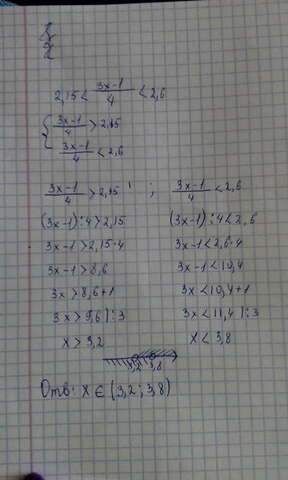 2,15 < (3x-1)/4 < 2,6
{ (3x-1)/4 > 2,15
(3x-1)/4 < 2,6
(3x-1)/4 > 2,15 ; (3x-1)/4 < 2,6
(3x-1):4 > 2,15 (3x-1):4 < 2,6
3x-1 > 2,15·4 3x-1 < 2,6·4
3x-1 > 8,6 3x-1 < 10,4
3x > 8,6+1 3x < 10,4+1
3x > 9,6 |:3 3x < 11,4 |:3
x > 3,2 x < 3,8
3,2 3,8
Отв: x ∈ (3,2; 3,8)